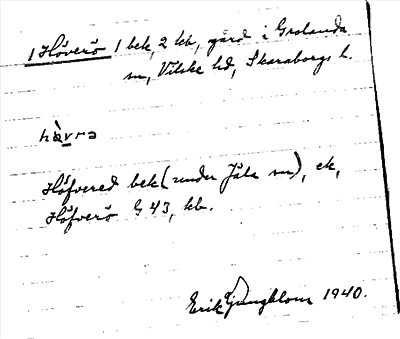 1 Höverö 1 bek, 2 kb, gård i Grolanda
sn, Vilske hd, Skaraborgs l.
hàvrə
Höfvered bek (under Jäla sn), ek,
Höfverö G 43, kb.
Erik Ljungblom 1940.